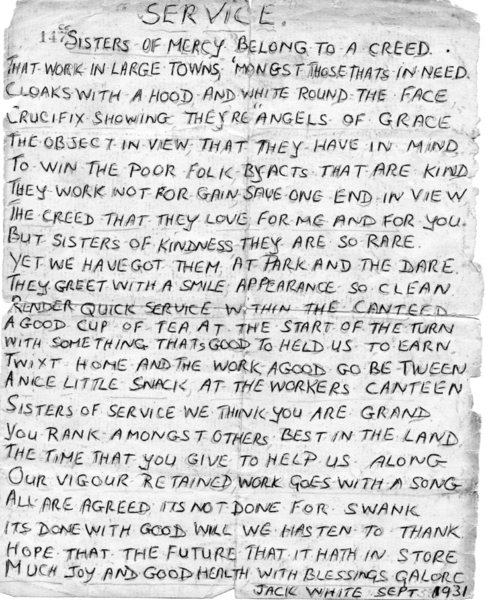 SERVICE.
147
SISTERS OF MERCY BELONG TO A CREED.
THAT WORK IN LARGE TOWNS, 'MONGST THOSE THATS IN NEED.
CLOAKS WITH A HOOD AND WHITE ROUND THE FACE
CRUCIFIX SHOWING THEY'RE "ANGELS OF GRACE
THE OBJECT IN VIEW THAT THEY HAVE IN MIND
TO WIN THE POOR FOLK BY ACTS THAT ARE KIND
THEY WORK NOT FOR GAIN SAVE ONE END IN VIEW
THE CREED THAT THEY LOVE FOR ME AND FOR YOU.
BUT SISTERS OF KINDNESS THEY ARE SO RARE.
YET WE HAVE GOT THEM, AT PARK AND THE DARE.
THEY GREET WITH A SMILE, APPEARANCE SO CLEAN
RENDER QUICK SERVICE WITHIN THE CANTEED
A GOOD CUP OF TEA AT THE START OF THE TURN
WITH SOMETHING THATS GOOD TO HELD US TO EARN
TWIXT HOME AND THE WORK A GOOD GO BETWEEN
A NICE LITTLE SNACK, AT THE WORKERS CANTEEN
SISTERS OF SERVICE WE THINK YOU ARE GRAND
YOU RANK AMONGST OTHERS BEST IN THE LAND
THE TIME THAT YOU GIVE TO HELP US ALONG
OUR VIGOUR RETAINED WORK GOES WITH A SONG
ALL ARE AGREED ITS NOT DONE FOR SWANK
ITS DONE WITH GOOD WILL WE HASTEN TO THANK
HOPE THAT THE FUTURE THAT IT HATH IN STORE
MUCH JOY AND GOOD HEALTH WITH BLESSINGS GALORE
JACK WHITE SEPT 1931